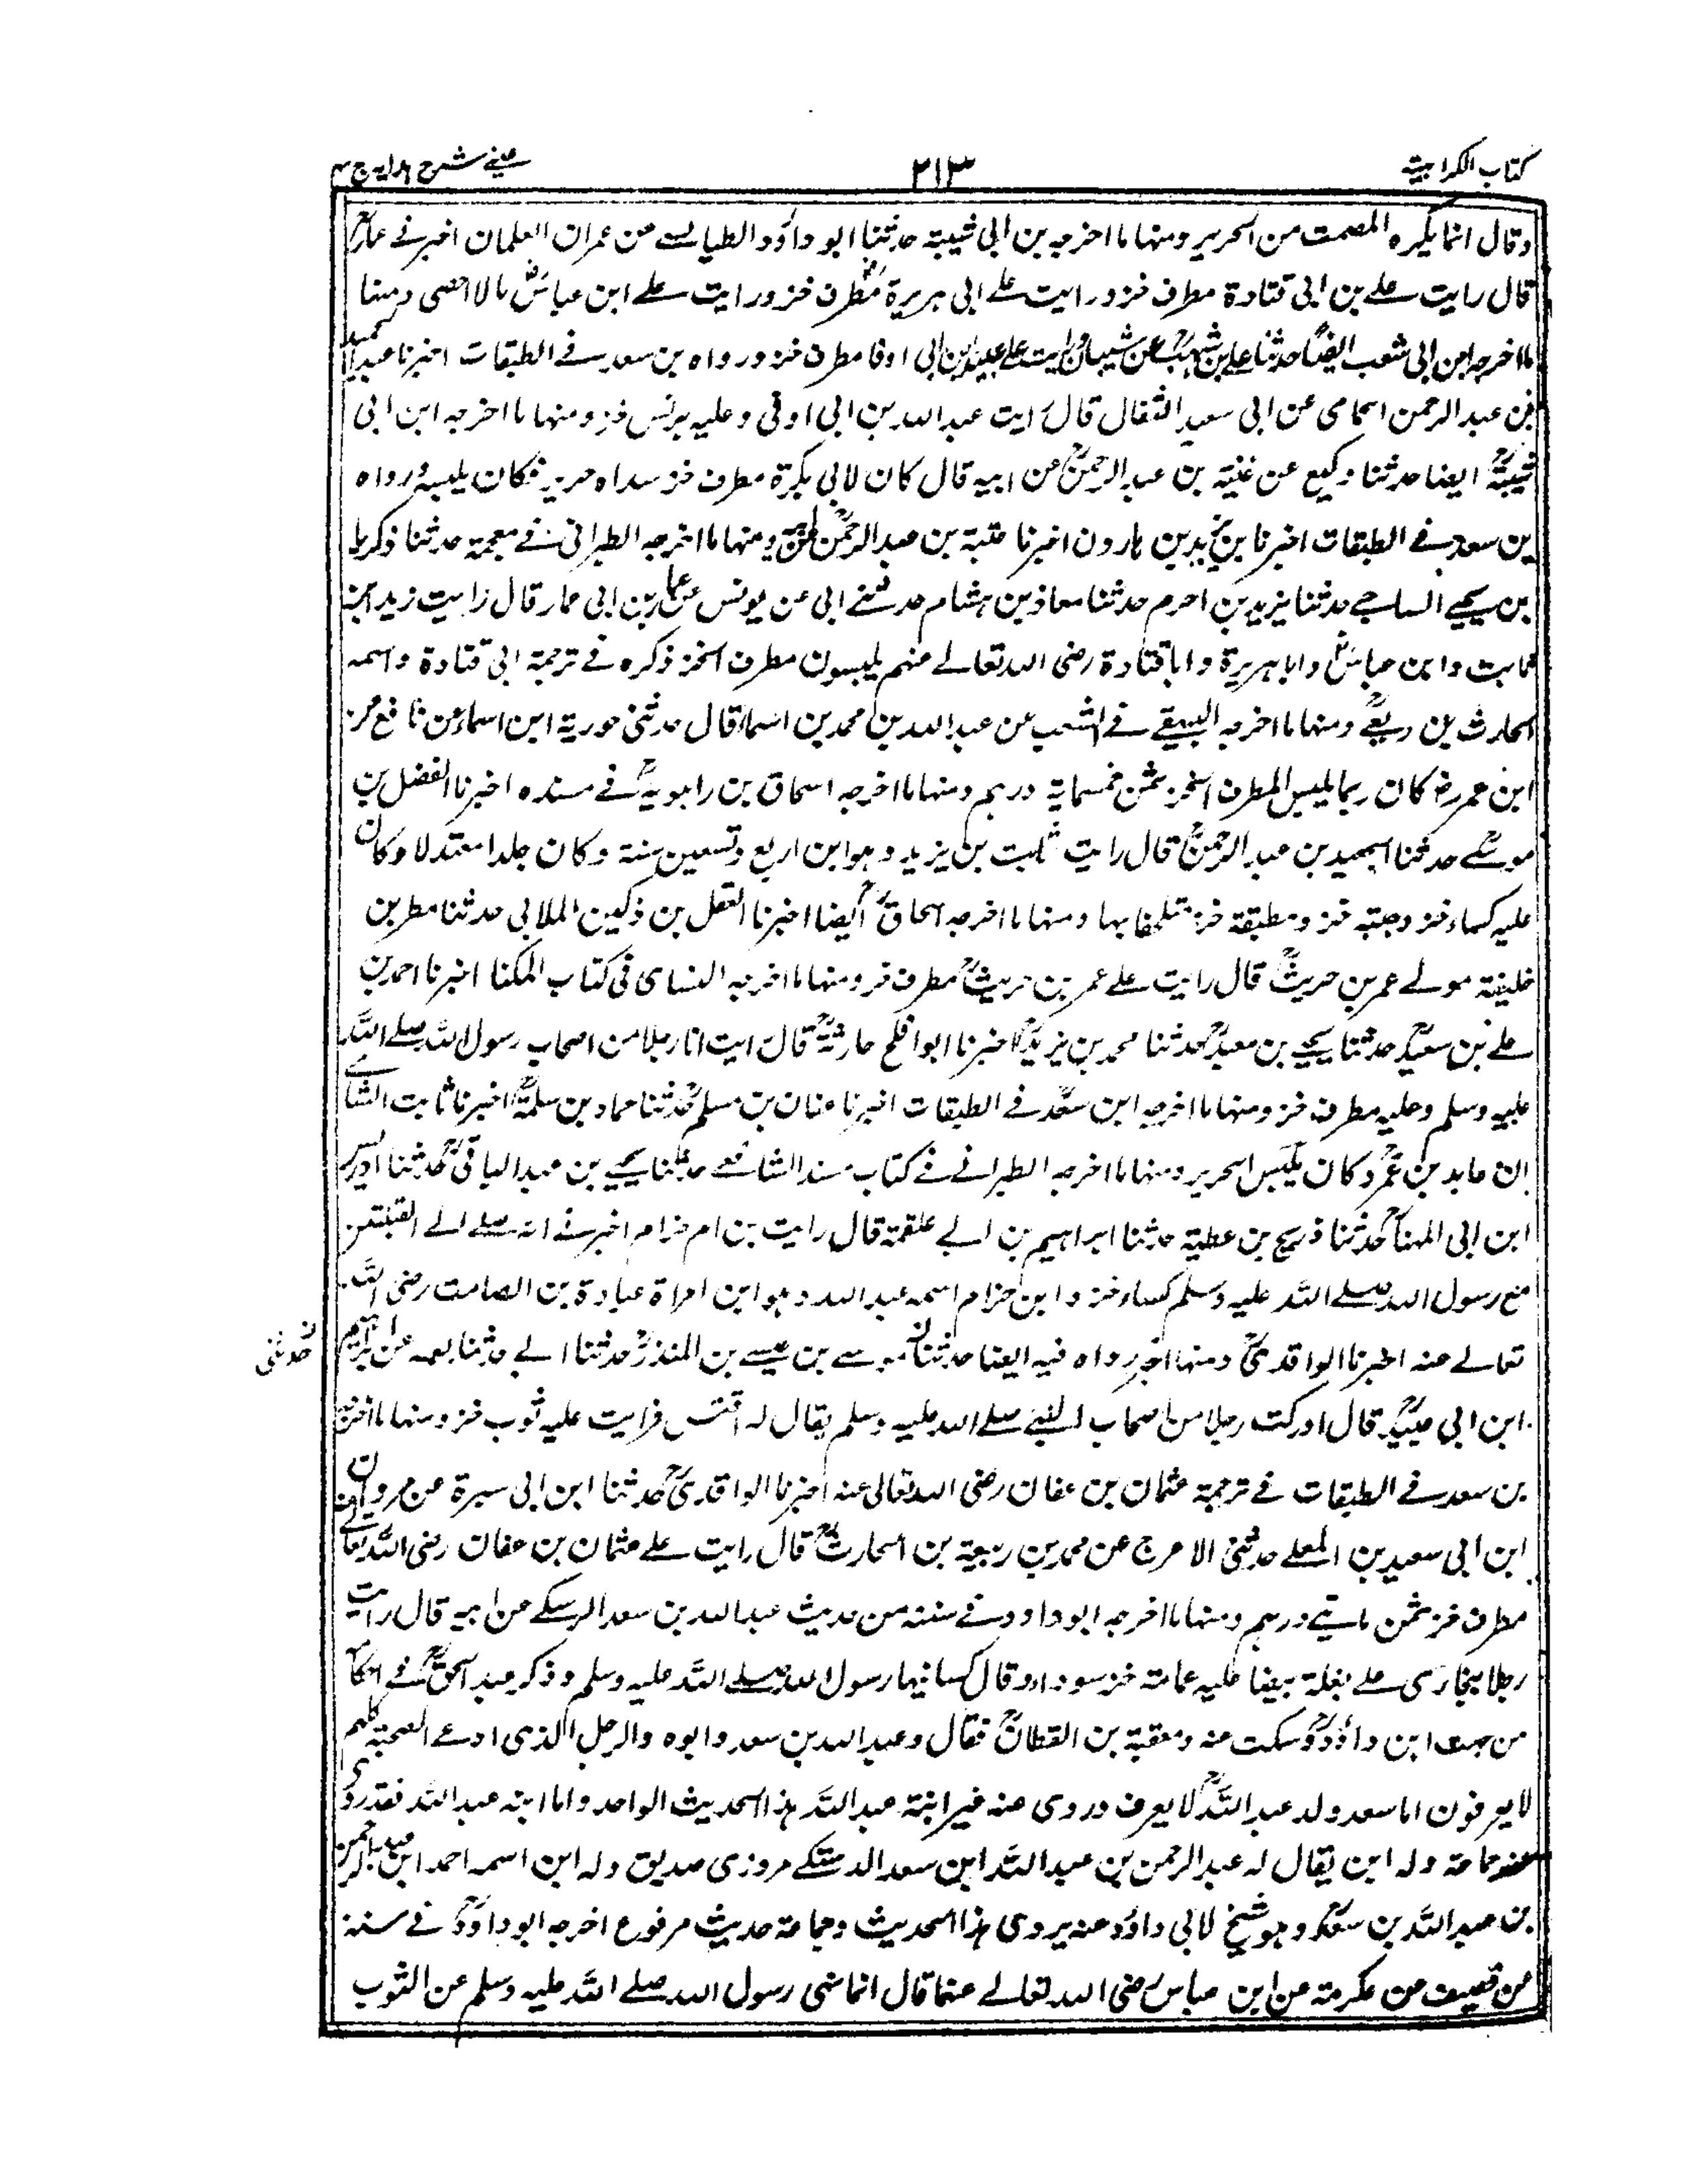 كتاب الكراهية
٢١٣
عينى شرح هداية ج ٤
وقال انما يكره المصمت من الحرير ومنها ما اخرجه بن ابي شيبة حدثنا ابو داؤد الطيالسے عن عمران العلمان اخبرنے عمار
قال رايت علے بن ابى قتادة مطرف خز ورايت علے ابى هريرة مطرف خز ورايت علے ابن عباس مالا احصى ومنها
ما اخرجه ابن ابى شعب ايضا حدثنا على بن عن رايت على بن ابى اوفا مطرف خز ورواه بن سعد فے الطبقات اخبرنا عبد
بن عبد الرحمن عن ابى سعيد القفال قال رايت عبد الله بن ابى اوفى وعليه برنس خز ومنها ما اخرجه ابن ابى
شيبة ايضا حدثنا وكيع عن بن عبد الرحمن عن ابيه قال كان لابى بكرة مطرف خز سداه حرير فكان يلبسه ورواه
بن سعد فے الطبقات اخبرنا بن يزيد بن هارون اخبرنا بن عبد الرحمن ومنها ما اخرجه الطبرانى فے معجمه حدثنا ذكريا
بن يحيے الساجے حدثنا يزيد بن احرم حدثنا معاذ بن هشام حدثنے ابى عن يونس عن عمار بن ابى عمار قال رايت زيد ابن
ثابت وابن عباس وابا هريرة وابا قتادة رضى الله تعالے عنهم يلبسون مطرف الخز ذكره فے ترجمة ابى قتادة واسمه
الحارث بن ربعے ومنها ما اخرجه البيهقے فے الشعب عن عبد الله بن محمد بن اسماء قال حدثنى جويرية ابن اسماء عن نافع عن
ابن عمر رض كان ربما يلبس المطرف الخز بثمن خمسماية درهم ومنها ما اخرجه اسحاق بن راهويه فے مسنده اخبرنا الفضل بن
موسے حدثنا بن عبد الرحمن قال رايت بن يزيد وهو ابن اربع وتسعين سنة وكان جلدا معتدلا وكان
عليه كساء خز وجبته خز ومطبقة خز ملتحفا بها ومنها ما اخرجه اسحاق ايضا اخبرنا بن الملائى حدثنا مطر بن
خليفة مولے عمر بن حريث قال رايت علے عمر بن حريث مطرف خز ومنها ما اخرجه النساى فى كتاب الكنا اخبرنا احمد بن
علے بن سعيد حدثنا يحيے بن معين حدثنا محمد بن يزيد اخبرنا ابو حارثة قال رايت رجلا من اصحاب رسول الله صلے الله
عليه وسلم وعليه مطرف خز ومنها ما اخرجه ابن سعد فے الطبقات اخبرنا عفان بن مسلم حدثنا حماد بن سلمة اخبرنا ثابت
ان عابد بن عمرو كان يلبس الحرير ومنها ما اخرجه الطبرانے فے كتاب مسند الشافعے حدثنا يحيے بن عبد الباقى حدثنا ادريس
ابن ابى حدثنا بن عطية حدثنا ابراهيم بن ابے علقمة قال رايت بن ام حزام اخبرنے انه صلے الے القبلتين
مع رسول الله صلے الله عليه وسلم كساء خز وابن حزام اسمه عبد الله وهو ابن امراة عبادة بن الصامت رضى الله
تعالے عنه اخبرنا الواقدى ومنها رواه فيه ايضا حدثنا موسے بن عيسے بن المنذر حدثنا ابے حدثنا عن ابراهيم
ن حدثنى
ابن ابى قال ادركت رجلا من اصحاب النبے صلے الله عليه وسلم يقال له فرايت عليه ثوب خز ومنها ما اخرجه
بن سعد فے الطبقات فے ترجمة عثمان بن عفان رضى الله تعالى عنه اخبرنا الواقدى حدثنا ابن ابى سبرة عن مروان
ابن ابى سعيد بن المعلے حدثنى الاعرج عن محمد بن ربيعة بن الحارث قال رايت علے عثمان بن عفان رضى الله تعالے
مطرف خز ثمن مايتے درهم ومنها ما اخرجه ابو داود فے سننه من حديث عبد الله بن سعد عن ابيه قال رايت
رجلا ببخارى علے بغلة بيضا عليه عمامة خز سوداء وقال كسانيها رسول الله صلے الله عليه وسلم وذكر عبد الحق فے احكا
من جهت ابن داؤد وسكت عنه وعقبة بن القطان فقال وعبد الله بن سعد وابوه والرجل الذى ادعے الصحبة كلهم
لا يعرفون اما سعد ولد عبد الله لا يعرف وروى عنه غير ابنة عبد الله هذا الحديث الواحد واما ابنه عبد الله فقد روى
عنه جماعة وله ابن يقال له عبد الرحمن بن عبد الله ابن سعد مروزى صديق وله ابن اسمه احمد ابن عبد الرحمن
بن عبد الله بن سعد وهو شيخ لابى داؤد عنه يروى هذا الحديث وجماعة حديث مرفوع اخرجه ابو داود فے سننه
عن خصيف عن عكرمة عن ابن عباس رضى الله تعالے عنهما قال انما نهى رسول الله صلے الله عليه وسلم عن الثوب